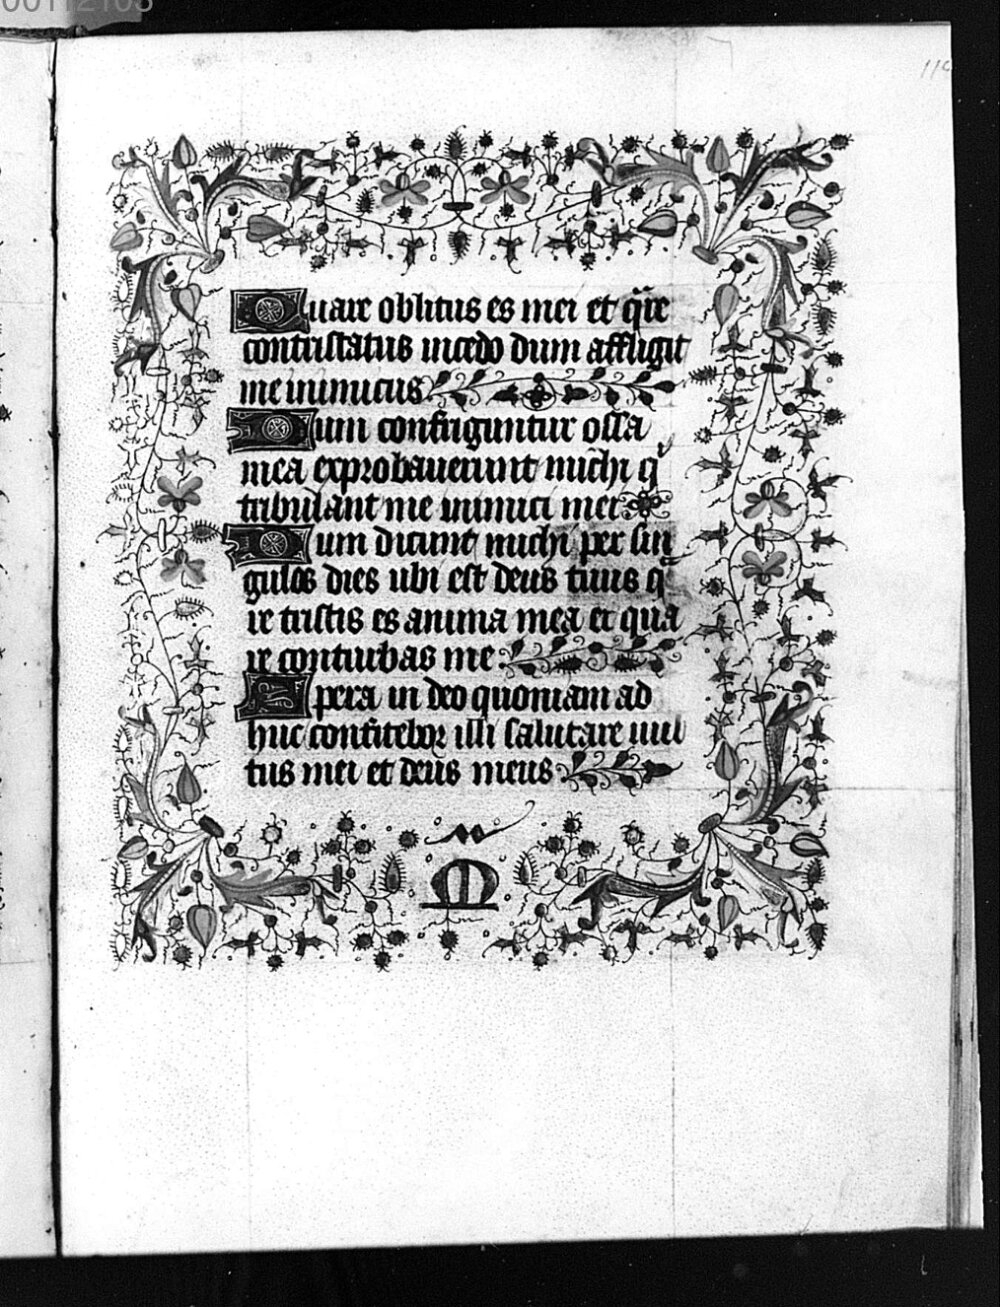 00112103
114
Quare oblitus es mei et qͣre
contristatus incedo dum affligit
me inimicus
Dum confriguntur ossa
mea exprobaverunt michi qͥ
tribulant me inimici mei
Dum dicunt michi per sin
gulos dies ubi est deus tuus qͣ
re tristis es anima mea et qua
re conturbas me:
Spera in deo quoniam ad
huc confitebor illi salutare vul
tus mei et deus meus:
M